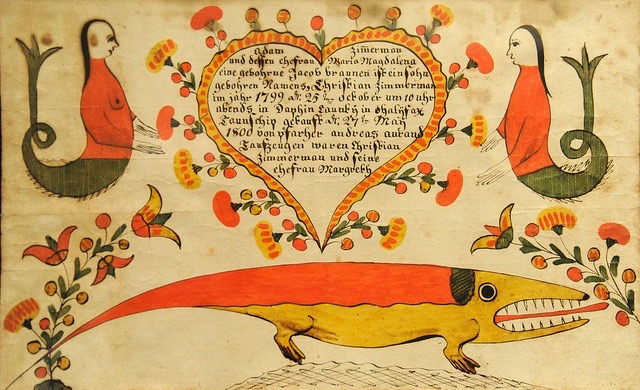 adam Zimerman
und dessen ehefrau Maria Magdalena
eine gebohrne Jacob braunen ist ein sohn
gebohren Namens, Christian Zimmerman
im jahr 1799 dn: 25 ten october um 10 uhr
abends in Daphin Caunty in Halifax
Taunschip getauft dn: 27 ten May
1800 von pfarher andreas aurand
Taufzeugen waren Christian
Zimmerman und seine
ehefrau Margreth